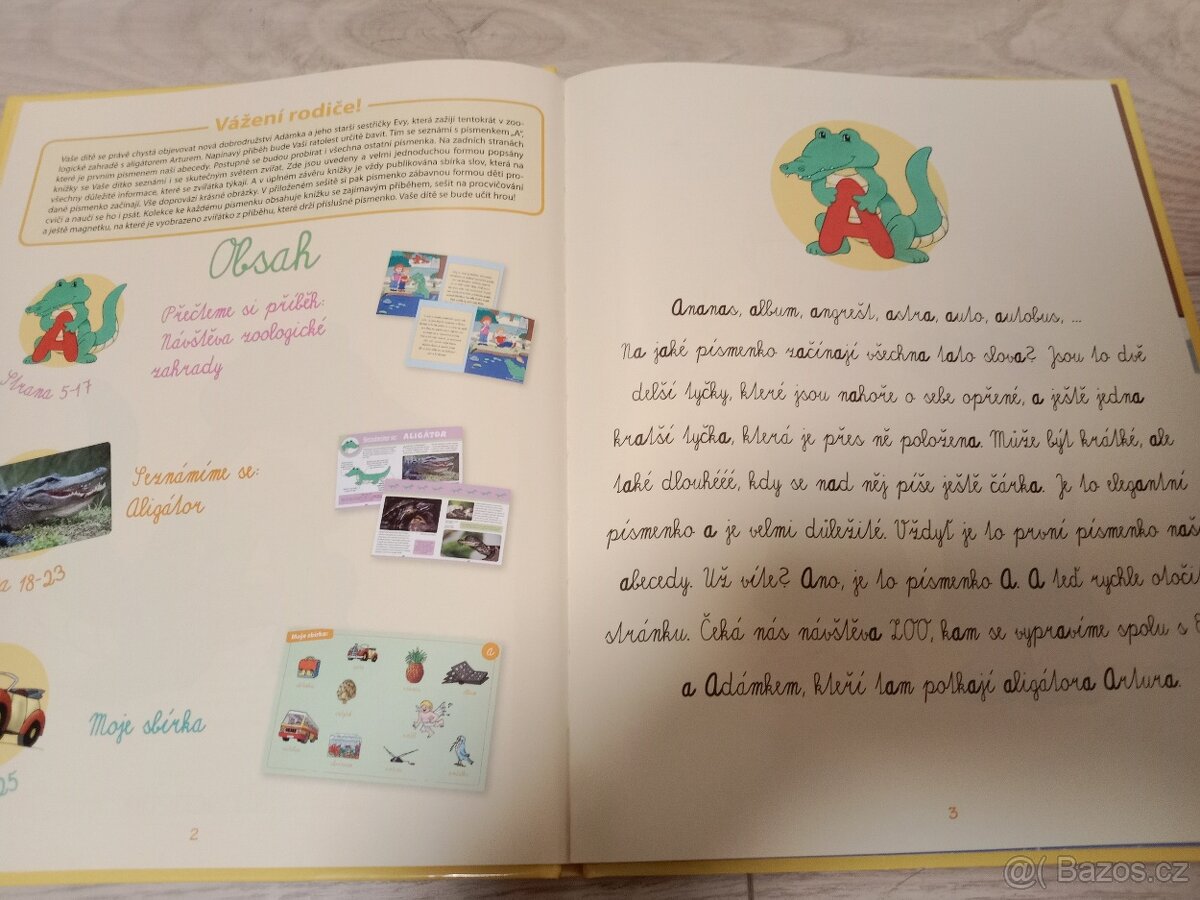 Vážení rodiče!
Vaše dítě se právě chystá objevovat nová dobrodružství Adámka a jeho starší sestřičky Evy, která zažijí tentokrát v zoo-
logické zahradě s aligátorem Arturem. Napínavý příběh bude Vaši ratolest určitě bavit. Tím se seznámí s písmenkem „A“,
které je prvním písmenem naší abecedy. Postupně se budou probírat i všechna ostatní písmenka. Na zadních stranách
knížky se Vaše dítko seznámí i se skutečným světem zvířat. Zde jsou uvedeny a velmi jednoduchou formou popsány
všechny důležité informace, které se zvířátka týkají. A v úplném závěru knížky je vždy publikována sbírka slov, která na
dané písmenko začínají. Vše doprovází krásné obrázky. V přiloženém sešitě si pak písmenko zábavnou formou děti pro-
cvičí a naučí se ho i psát. Kolekce ke každému písmenku obsahuje knížku se zajímavým příběhem, sešit na procvičování
a ještě magnetku, na které je vyobrazeno zvířátko z příběhu, které drží příslušné písmenko. Vaše dítě se bude učit hrou!
Obsah
A
Přečteme si příběh:
Návštěva zoologické
zahrady
Strana 5-17
Seznámíme se:
Aligátor
18-23
Seznámíme se: ALIGÁTOR
Moje sbírka
25
Moje sbírka:
a
2
A
Ananas, album, angrešt, astra, auto, autobus, ...
Na jaké písmenko začínají všechna tato slova? Jsou to dvě
delší tyčky, které jsou nahoře o sebe opřené, a ještě jedna
kratší tyčka, která je přes ně položena. Může být krátké, ale
také dlouhééé, kdy se nad něj píše ještě čárka. Je to elegantní
písmenko a je velmi důležité. Vždyť je to první písmenko naší
abecedy. Už víte? Ano, je to písmenko A. A teď rychle otočit
stránku. Čeká nás návštěva ZOO, kam se vypravíme spolu s
a Adámkem, kteří tam potkají aligátora Artura.
3
@( Bazos.cz